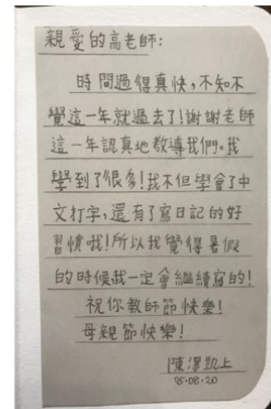 親愛的高老師:
時間過得真快,不知不
覺這一年就過去了!謝謝老師
這一年認真地教導我們。我
學到了很多!我不但學會了中
文打字,還有了寫日記的好
習慣哦!所以我覺得暑假
的時候我一定會繼續寫的!
祝你教師節快樂!
母親節快樂!
陳澤凱上
5.08.20